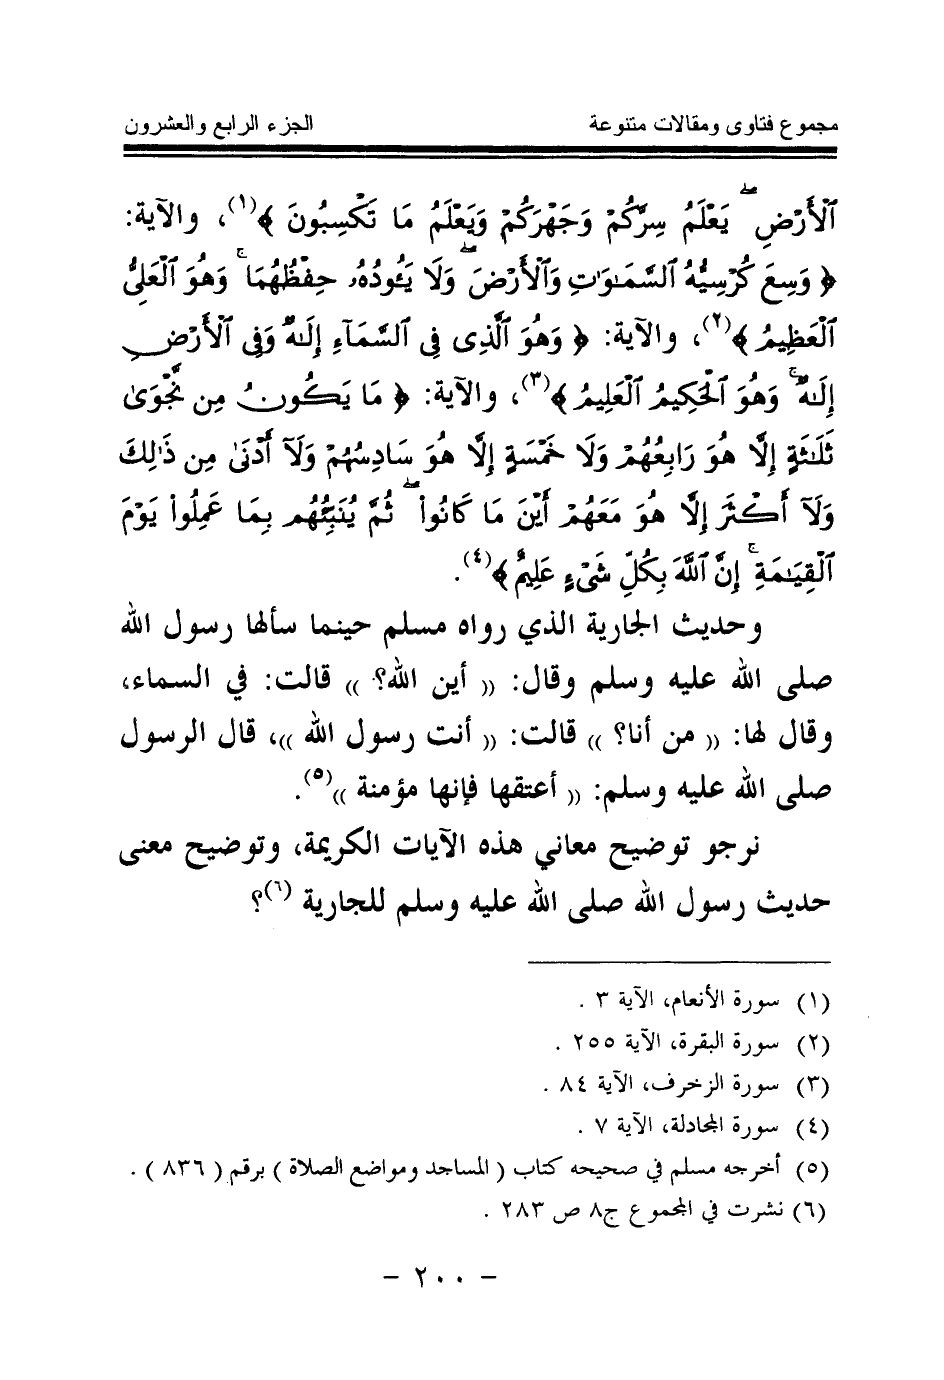 مجموع فتاوى ومقالات متنوعة الجزء الرابع والعشرون
ٱلْأَرْضِ ۖ يَعْلَمُ سِرَّكُمْ وَجَهْرَكُمْ وَيَعْلَمُ مَا تَكْسِبُونَ ﴾(١)، والآية:
﴿ وَسِعَ كُرْسِيُّهُ ٱلسَّمَـٰوَٰتِ وَٱلْأَرْضَ ۖ وَلَا يَـُٔودُهُۥ حِفْظُهُمَا ۚ وَهُوَ ٱلْعَلِىُّ
ٱلْعَظِيمُ ﴾(٢)، والآية: ﴿ وَهُوَ ٱلَّذِى فِى ٱلسَّمَآءِ إِلَـٰهٌ وَفِى ٱلْأَرْضِ
إِلَـٰهٌ ۚ وَهُوَ ٱلْحَكِيمُ ٱلْعَلِيمُ ﴾(٣)، والآية: ﴿ مَا يَكُونُ مِن نَّجْوَىٰ
ثَلَـٰثَةٍ إِلَّا هُوَ رَابِعُهُمْ وَلَا خَمْسَةٍ إِلَّا هُوَ سَادِسُهُمْ وَلَآ أَدْنَىٰ مِن ذَٰلِكَ
وَلَآ أَكْثَرَ إِلَّا هُوَ مَعَهُمْ أَيْنَ مَا كَانُوا۟ ۖ ثُمَّ يُنَبِّئُهُم بِمَا عَمِلُوا۟ يَوْمَ
ٱلْقِيَـٰمَةِ ۚ إِنَّ ٱللَّهَ بِكُلِّ شَىْءٍ عَلِيمٌ ﴾(٤).
وحديث الجارية الذي رواه مسلم حينما سألها رسول الله
صلى الله عليه وسلم وقال: (( أين الله؟ )) قالت: في السماء،
وقال لها: (( من أنا؟ )) قالت: (( أنت رسول الله ))، قال الرسول
صلى الله عليه وسلم: (( أعتقها فإنها مؤمنة ))(٥).
نرجو توضيح معاني هذه الآيات الكريمة، وتوضيح معنى
حديث رسول الله صلى الله عليه وسلم للجارية (٦)؟
(١) سورة الأنعام، الآية ٣ .
(٢) سورة البقرة، الآية ٢٥٥ .
(٣) سورة الزخرف، الآية ٨٤ .
(٤) سورة المجادلة، الآية ٧ .
(٥) أخرجه مسلم في صحيحه كتاب ( المساجد ومواضع الصلاة ) برقم ( ٨٣٦ ) .
(٦) نشرت في المجموع ج٨ ص ٢٨٣ .
- ٢٠٠ -